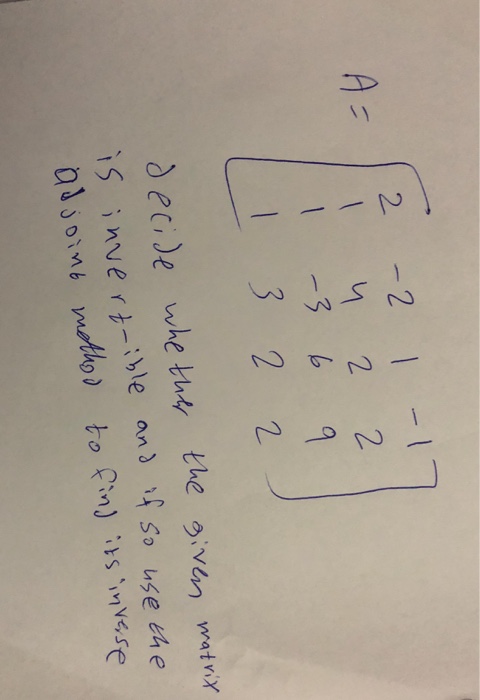 A =
2 -2 1 -1
1 4 2 2
1 -3 6 9
1 3 2 2
decide whether the given matrix
is invert-ible and if so use the
adjoint method to find its inverse